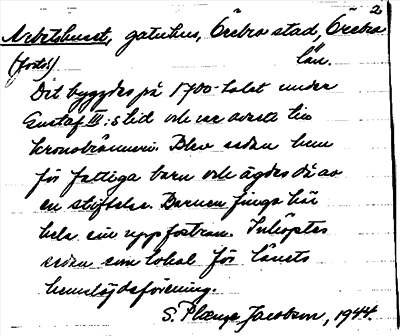 2
Arbetshuset, gatuhus, Örebro stad, Örebro
(forts.) län.
Det byggdes på 1700-talet under
Gustaf III:s tid och var avsett till
kronobränneri. Blev sedan hem
för fattiga barn och ägdes då av
en stiftelse. Barnen fingo här
hela sin uppfostran. Inköptes
sedan som lokal för länets
hemslöjdsförening.
S. Jacobson, 1944.